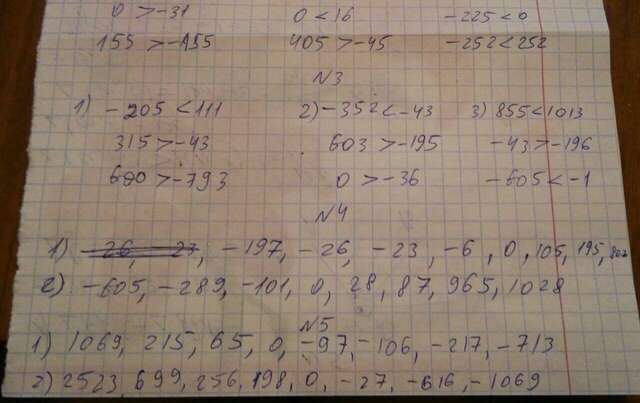 0 >-31 0 <16 -225 <0
155 >-155 405 >-45 -252 <252
N3
1) -205 <111 2) -352 <-43 3) 855 <1013
315 >-43 603 >-195 -43 >-196
600 >-793 0 >-36 -605 <-1
N4
1) -26, -27, -197, -26, -23, -6, 0, 105, 195,
2) -605, -289, -101, 0, 28, 87, 965, 1028
N5
1) 1069, 215, 65, 0, -97, -106, -217, -713
2) 2523, 699, 256, 198, 0, -27, -616, -1069